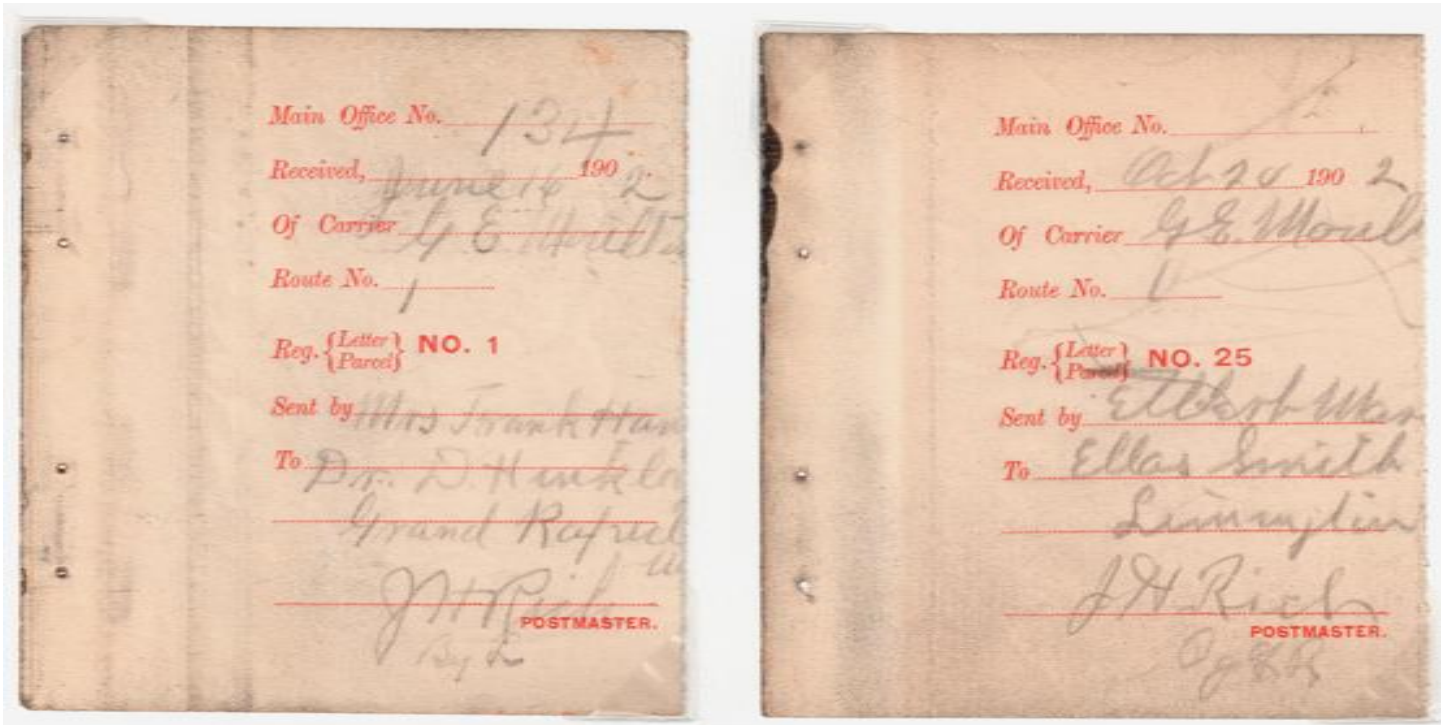 Main Office No. 134
Received, June 16 190 2
Of Carrier G. E.
Route No. 1
Reg. {Letter
Parcel} NO. 1
Sent by Mrs Frank
To Dr. D.
Grand
J H Rich
POSTMASTER.
By
Main Office No.
Received, Oct 190 2
Of Carrier G. E. Moul
Route No. 1
Reg. {Letter
Parcel} NO. 25
Sent by
To Ellas Smith
J. H. Rich
POSTMASTER.